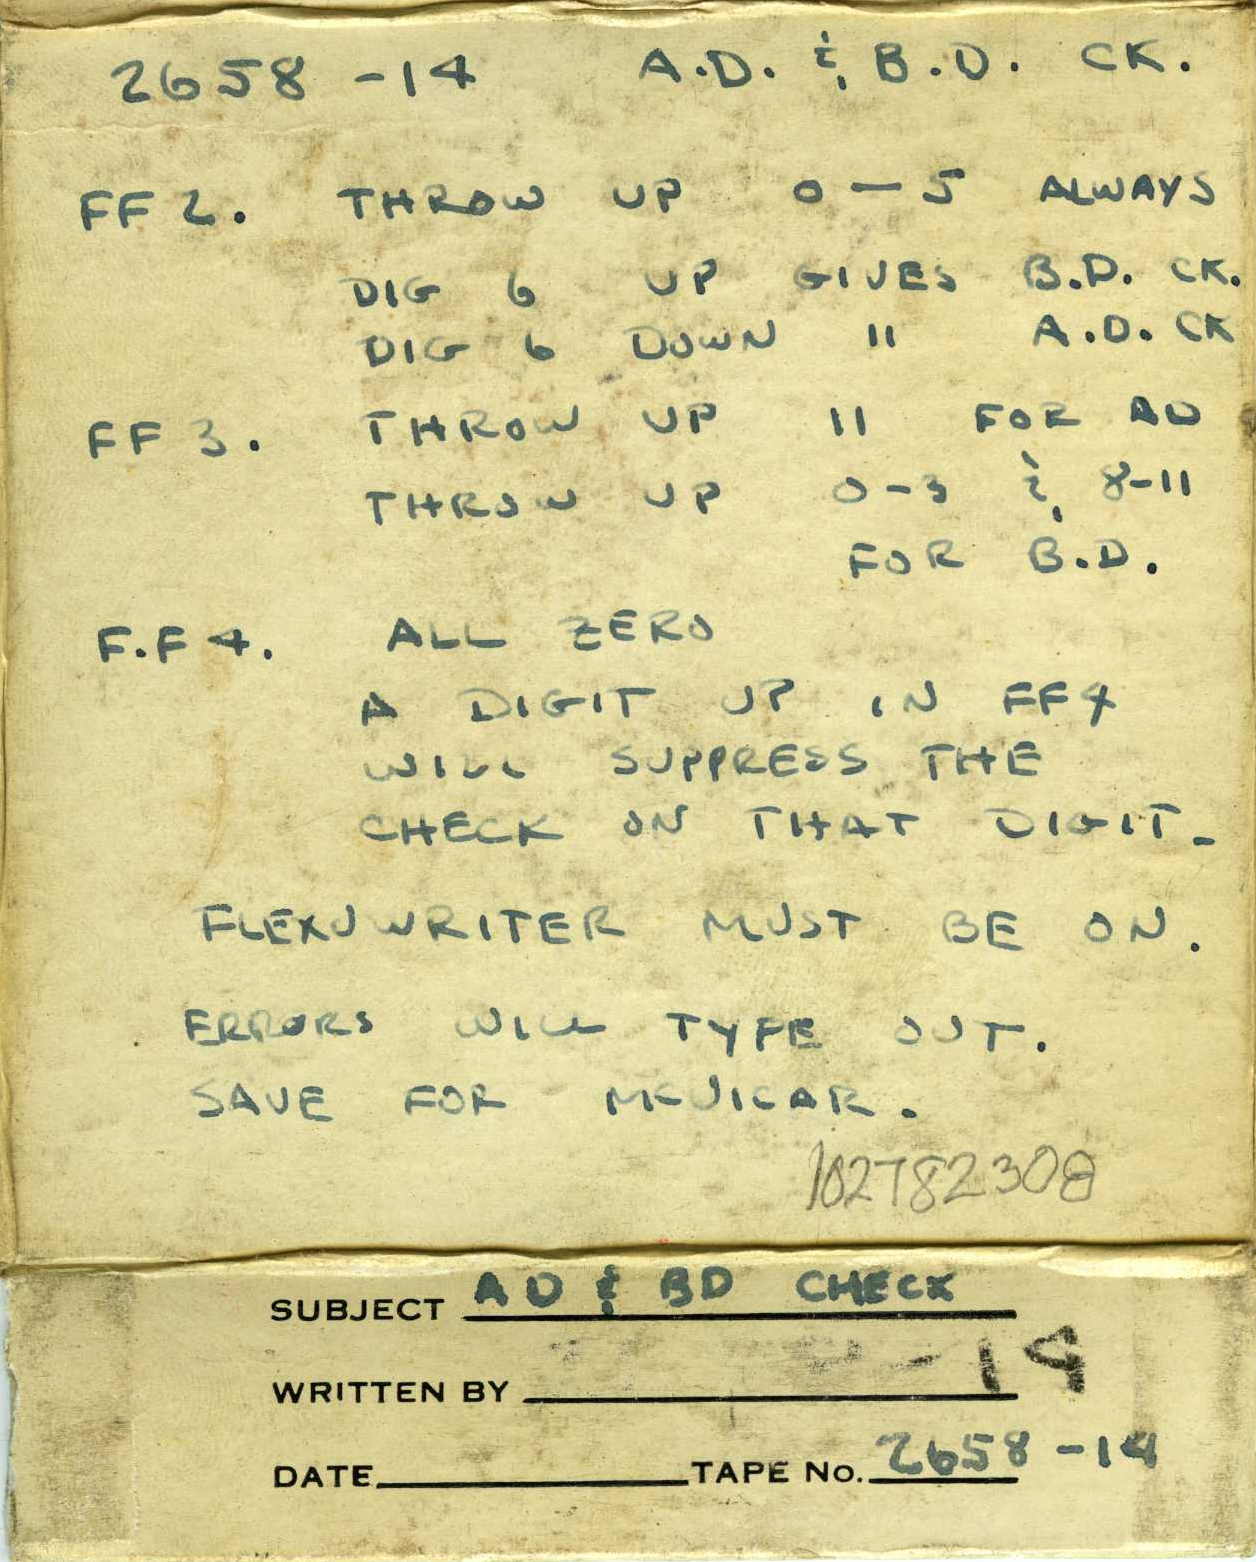 2658 -14 A.D. & B.D. CK.
FF 2. THROW UP 0 - 5 ALWAYS
DIG 6 UP GIVES B.D. CK.
DIG 6 DOWN " A.D. CK
FF 3. THROW UP 11 FOR AD
THROW UP 0-3 & 8-11
FOR B.D.
F.F 4. ALL ZERO
A DIGIT UP IN FF4
WILL SUPPRESS THE
CHECK ON THAT DIGIT.
FLEXOWRITER MUST BE ON.
ERRORS WILL TYPE OUT.
SAVE FOR MCVICAR.
102782308
SUBJECT AD & BD CHECK
WRITTEN BY -14
DATE TAPE No. 2658-14